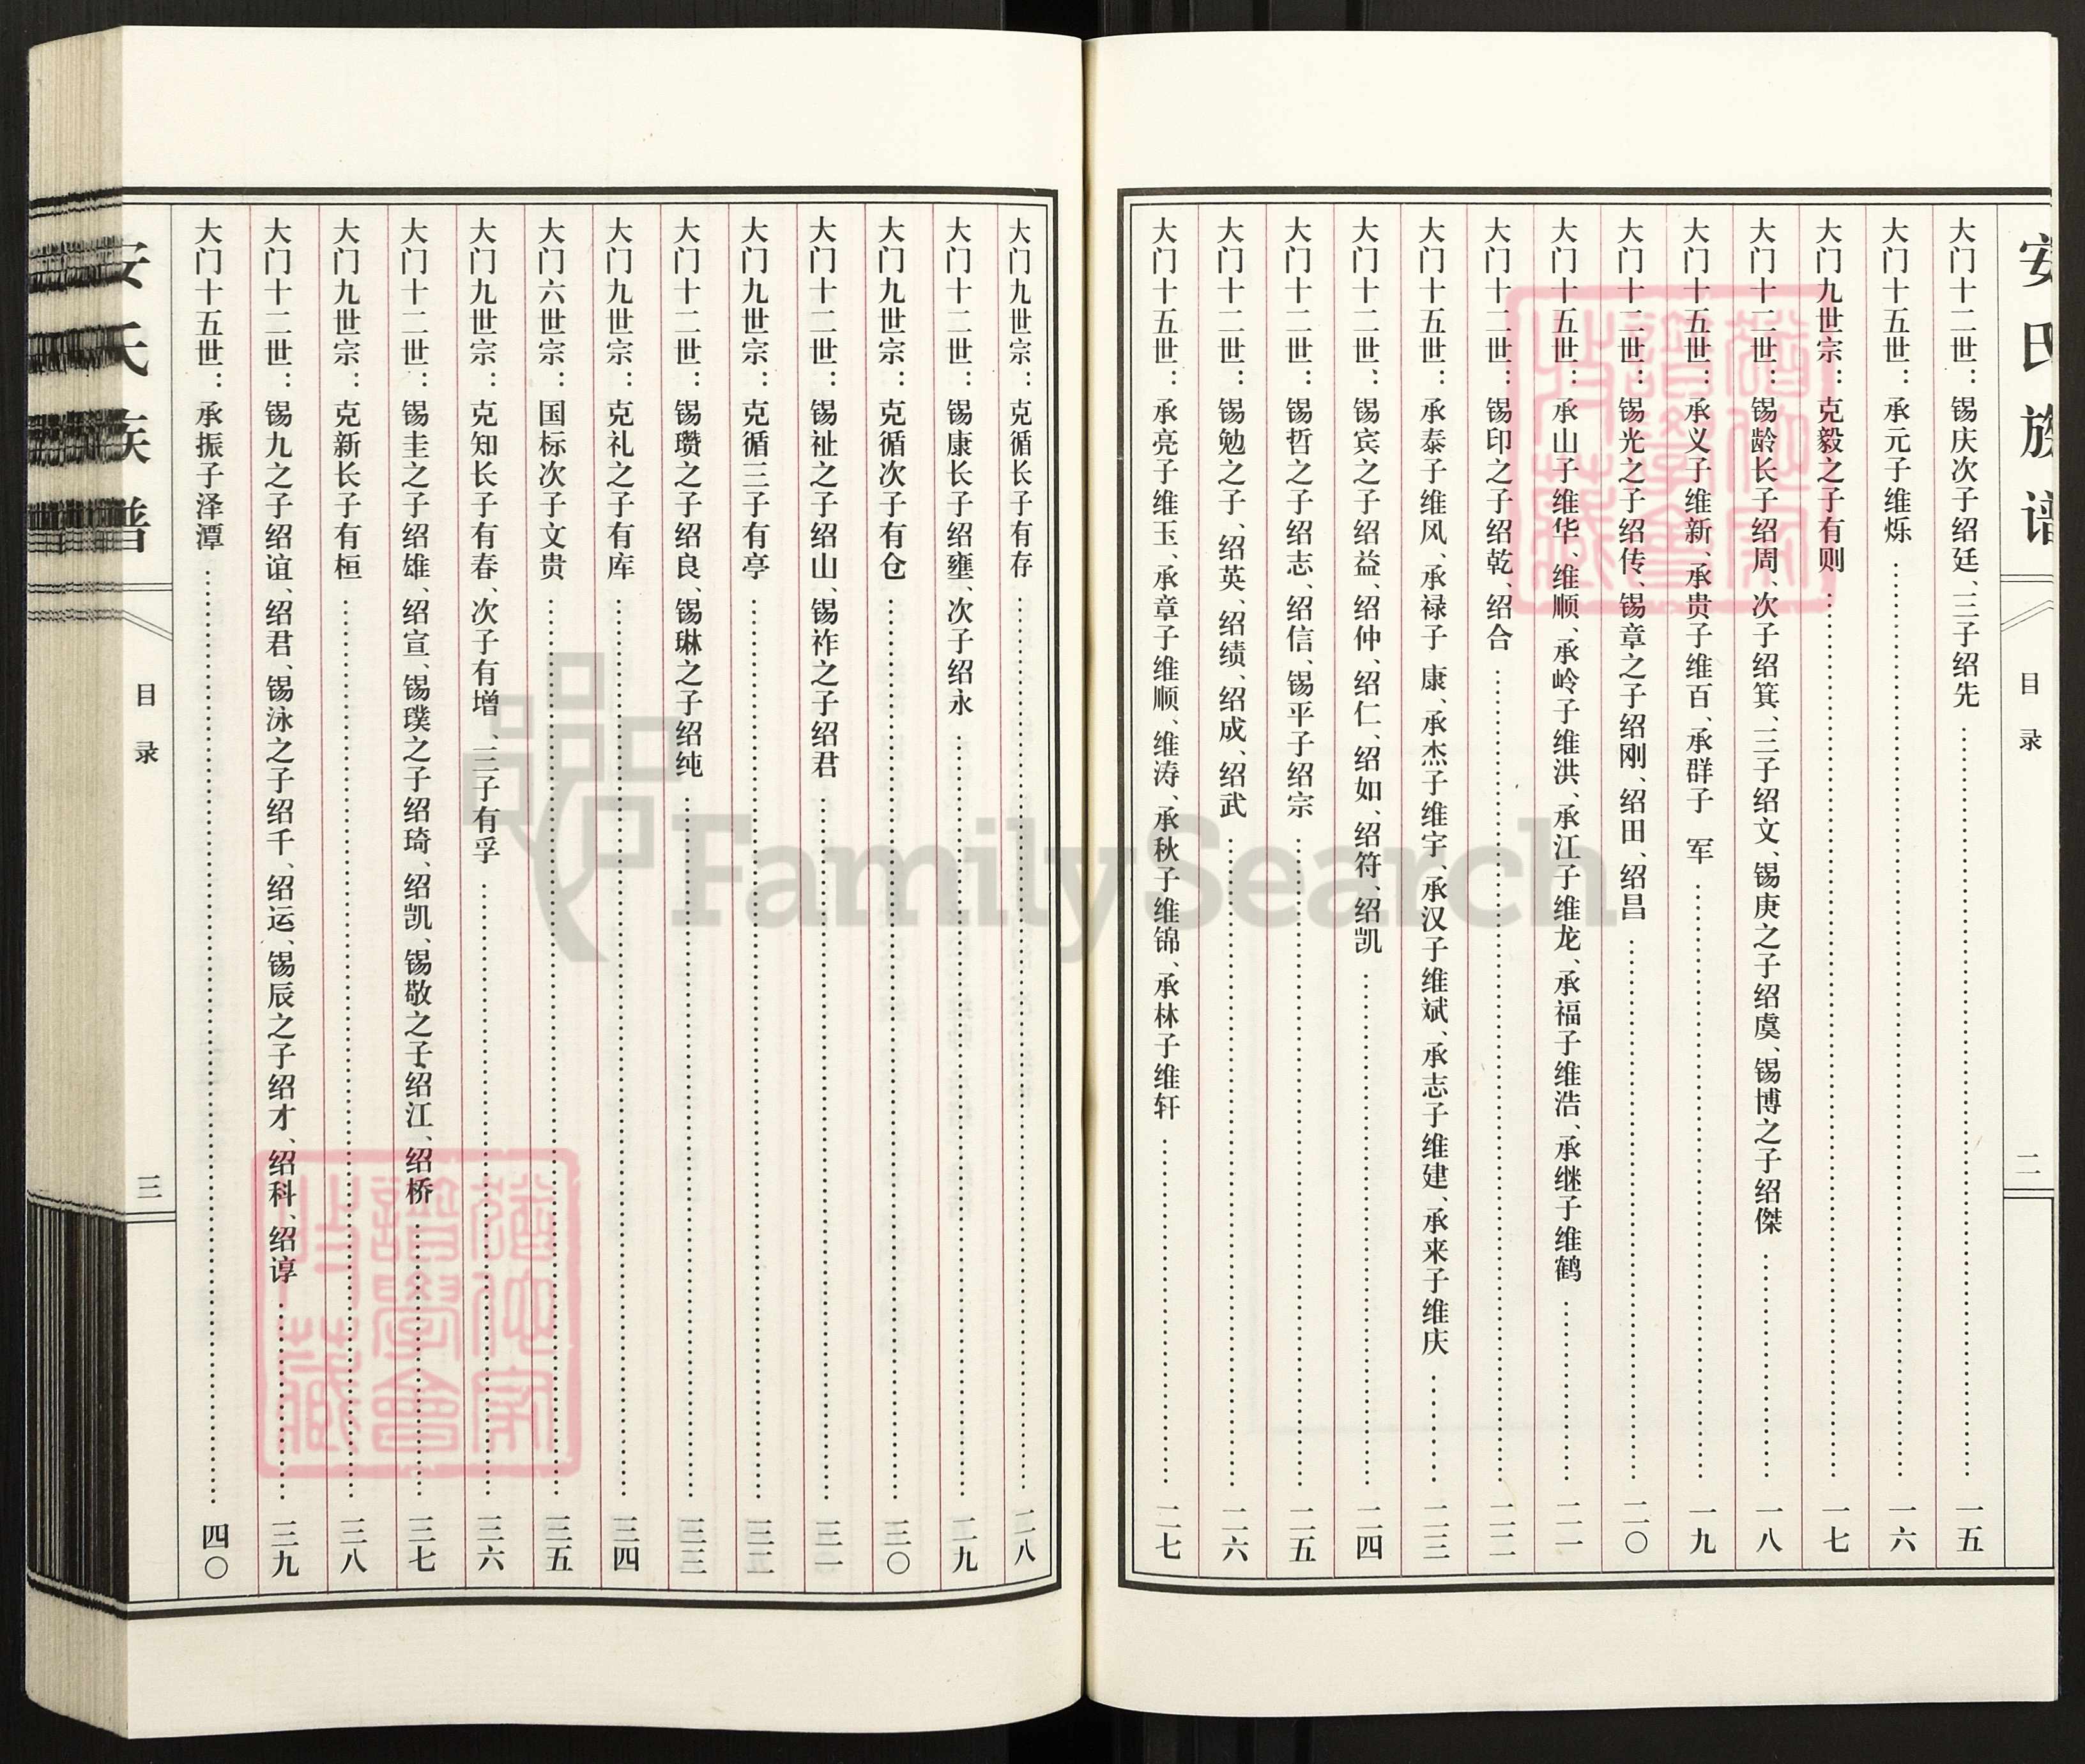 安氏族谱
目录
二
大门十二世：锡庆次子绍廷、三子绍先……一五
大门十五世：承元子维烁……一六
大门九世宗：克毅之子有则……一七
大门十二世：锡龄长子绍周、次子绍箕、三子绍文、锡庚之子绍虞、锡博之子绍傑……一八
大门十五世：承义子维新、承贵子维百、承群子 军……一九
大门十二世：锡光之子绍传、锡章之子绍刚、绍田、绍昌……二〇
大门十五世：承山子维华、维顺、承岭子维洪、承江子维龙、承福子维浩、承继子维鹤……二一
大门十二世：锡印之子绍乾、绍合……二二
大门十五世：承泰子维风、承禄子 康、承杰子维宇、承汉子维斌、承志子维建、承来子维庆……二三
大门十二世：锡宾之子绍益、绍仲、绍仁、绍如、绍符、绍凯……二四
大门十二世：锡哲之子绍志、绍信、锡平子绍宗……二五
大门十二世：锡勉之子、绍英、绍绩、绍成、绍武……二六
大门十五世：承亮子维玉、承章子维顺、维涛、承秋子维锦、承林子维轩……二七
大门九世宗：克循长子有存……二八
大门十二世：锡康长子绍壅、次子绍永……二九
大门九世宗：克循次子有仓……三〇
大门十二世：锡祉之子绍山、锡祚之子绍君……三一
大门九世宗：克循三子有亭……三二
大门十二世：锡瓒之子绍良、锡琳之子绍纯……三三
大门九世宗：克礼之子有库……三四
大门六世宗：国标次子文贵……三五
大门九世宗：克知长子有春、次子有增、三子有孚……三六
大门十二世：锡圭之子绍雄、绍宣、锡璞之子绍琦、绍凯、锡敬之子绍江、绍桥……三七
大门九世宗：克新长子有桓……三八
大门十二世：锡九之子绍谊、绍君、锡泳之子绍千、绍运、锡辰之子绍才、绍科、绍谆……三九
大门十五世：承振子泽潭……四〇
安氏族谱
目录
三
FamilySearch